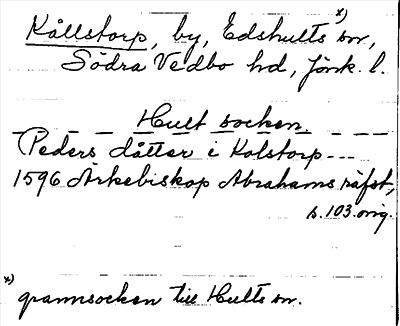 Kållstorp, by, Edshults x) sn,
Södra Vedbo hd, Jönk. l.
Hult socken.
Peders dåtter i Kolstorp ---
1596 Ärkebiskop Abrahams räfst,
s. 103. orig.
x)
grannsocken till Hults sn.